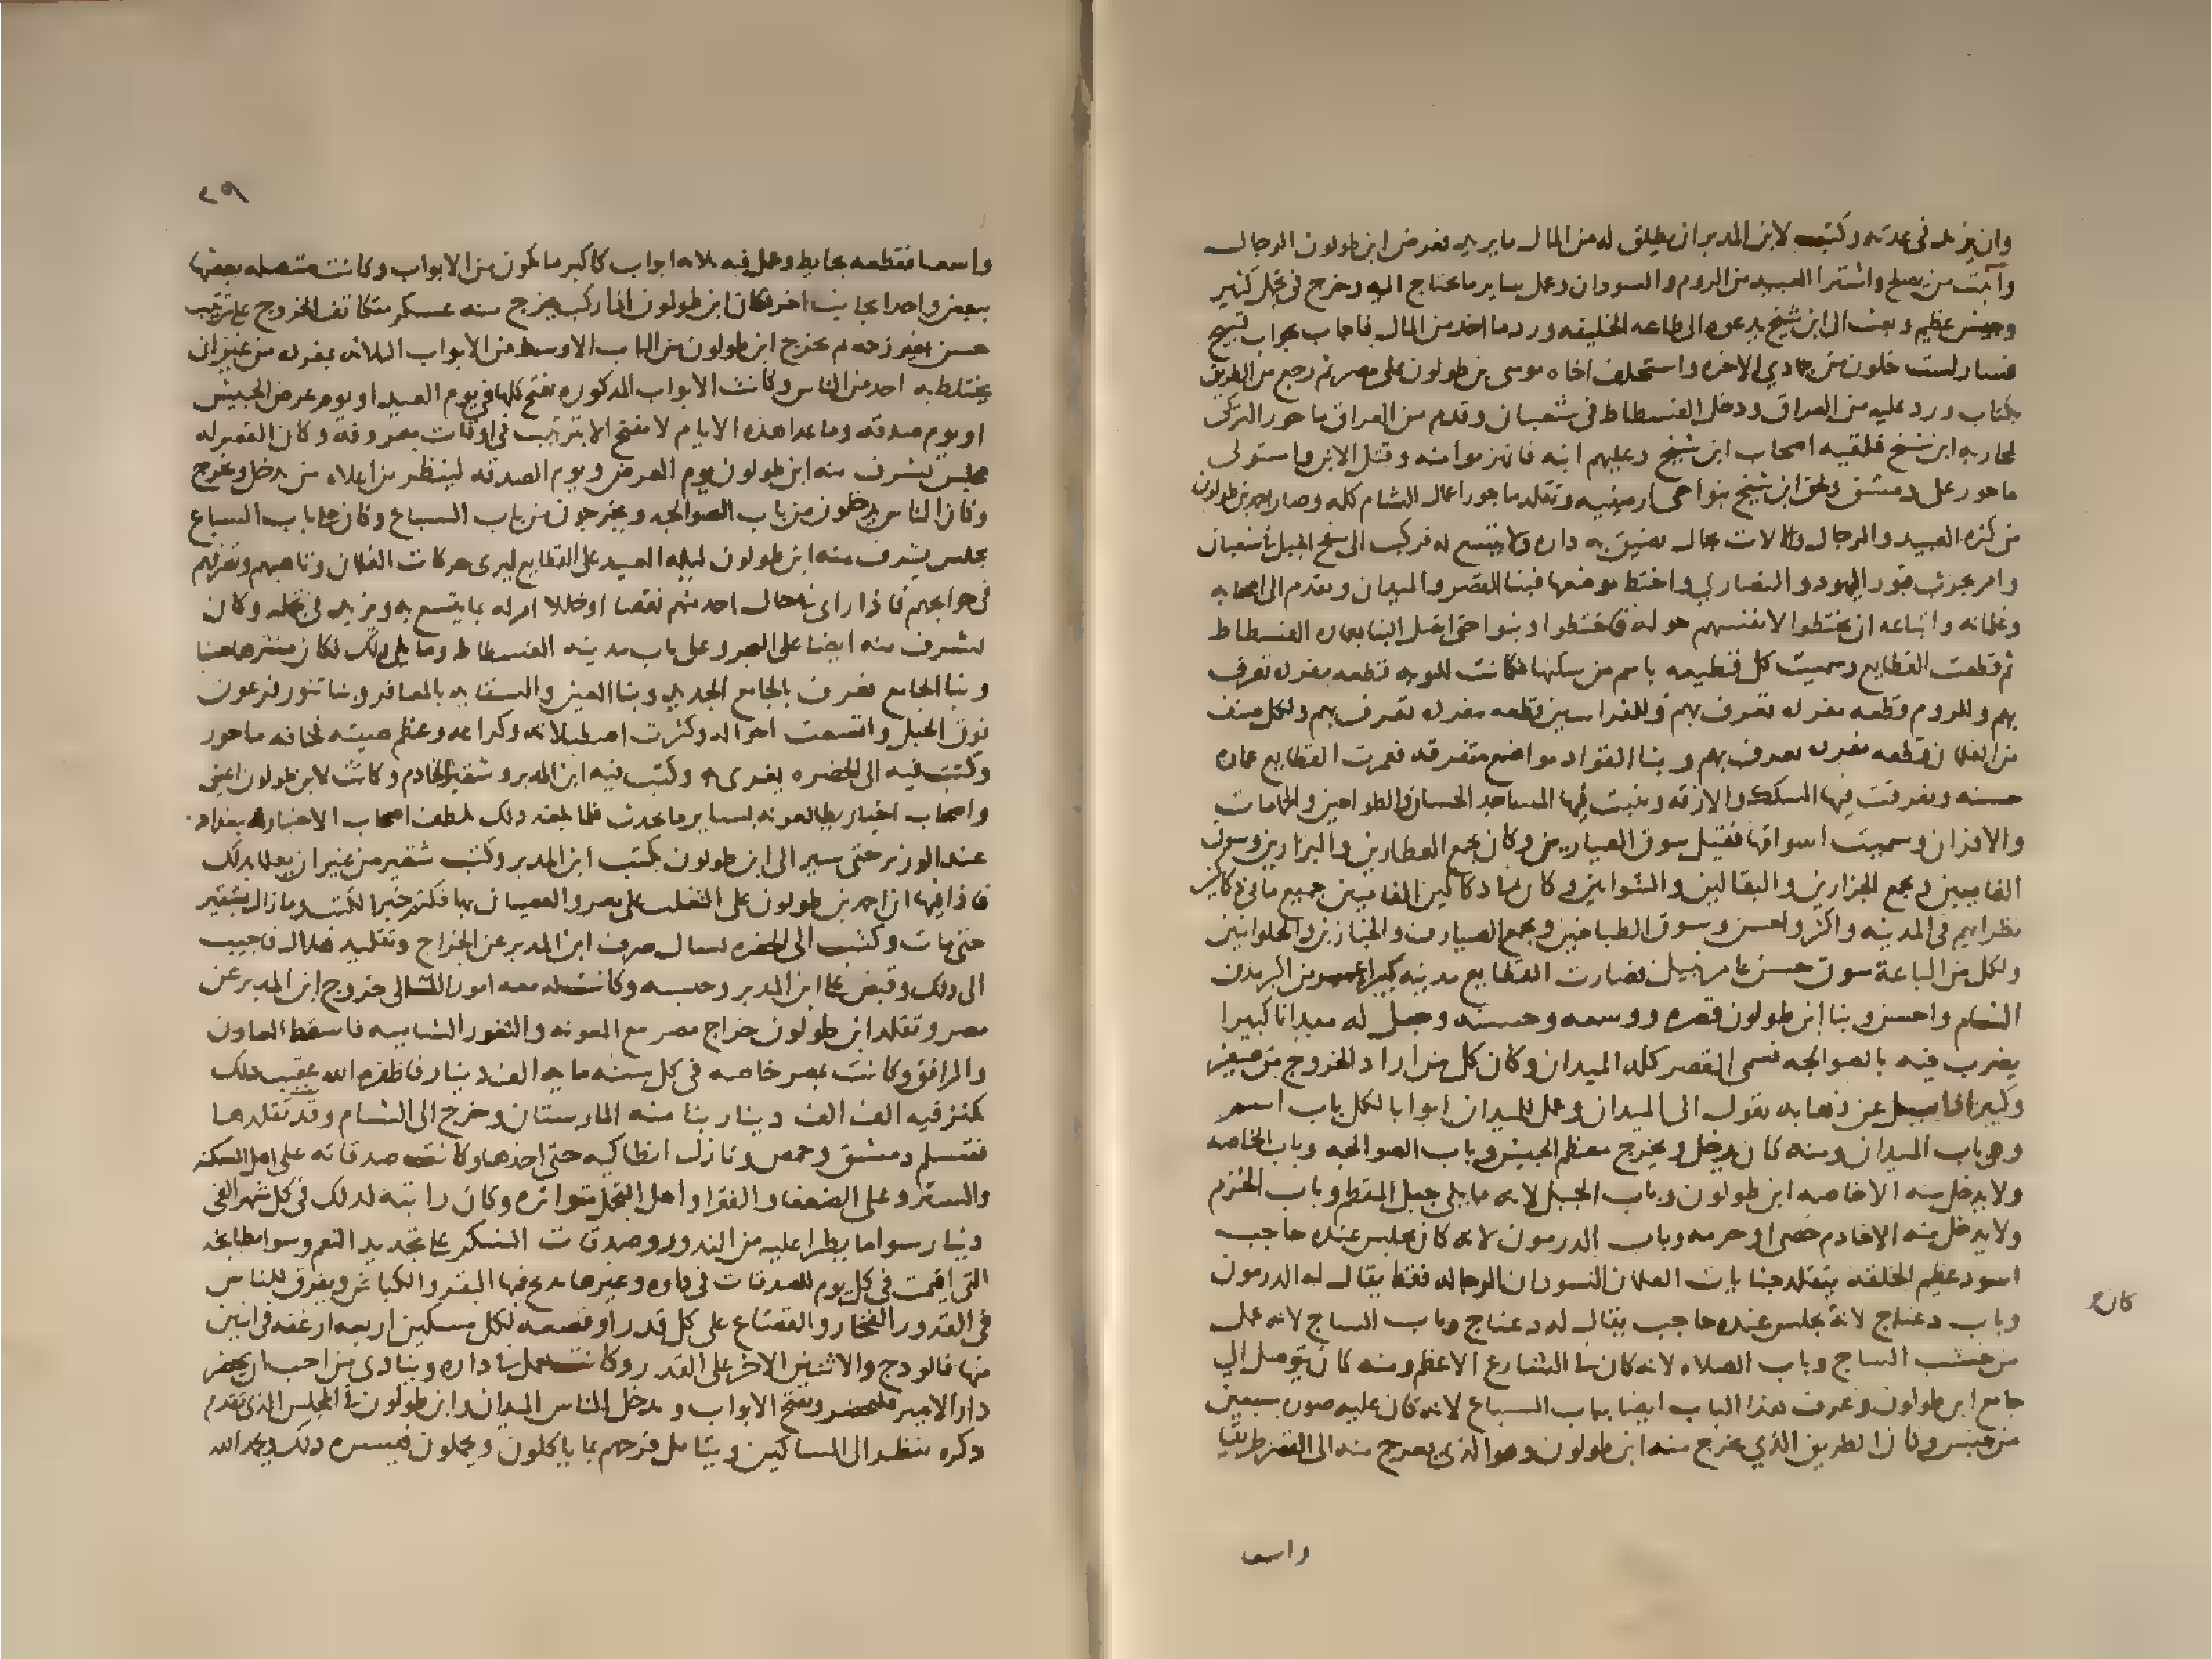 وان يزيد في عدته وكتب لابن المدبر ان يطلق له من المال ما يريد فعرض ابن طولون الرجال
واثبت من يصلح واشترا العبيد من الروم والسودان وعمل ساير ما يحتاج اليه وخرج في تجمل كبير
وجيش عظيم وبعث الى ابن شيخ يدعوه الى طاعه الخليفه ورد ما اخذ من المال فاجاب بجواب قبيح
فسار لست خلون من جمادي الاخره واستخلف اخاه موسى بن طولون على مصر ثم رجع من الطريق
بكتاب ورد عليه من العراق ودخل الفسطاط في شعبان وقدم من العراق ماجور التركي
لمحاربه ابن شيخ فلقيه اصحاب ابن شيخ وعليهم ابنه فانهزموا منه وقتل الابن واستولى
ماجور على دمشق ولحق ابن شيخ بنواحي ارمينيه وتقلد ماجور اعمال الشام كله وصار احمد بن طولون
من كثره العبيد والرجال والالات بحال يضيق به داره ولا يتسع له فركب الى سفح الجبل في شعبان
وامر بحرث قبور اليهود والنصاري واختط موضعها فبنا القصر والميدان وتقدم الى اصحابه
وغلمانه واتباعه ان يختطوا لانفسهم حوله فاختطوا وبنوا حتى اتصل البنا بعماره الفسطاط
ثم قطعت القطايع وسميت كل قطيعه باسم من سكنها فكانت للنوبه قطعه مفرده تعرف
بهم وللروم قطعه مفرده تعرف بهم وللفراسين قطعه مفرده تعرف بهم ولكل صنف
من الغلمان قطعه مفرده تعرف بهم وبنا القواد مواضع متفرقه فعمرت القطايع عماره
حسنه وتفرقت فيها السكك والازقه وبنيت فيها المساجد الحسان والطواحين والحمامات
والافران وسميت اسواقها فقيل سوق العيارين وكان يجمع العطارين والبزازين وسوق
الفاميين ويجمع الجزارين والبقالين والشوايين وكان في دكاكين الفاميين جميع ما في دكاكين
نظرايهم في المدينه واكثر واحسن وسوق الطباخين ويجمع الصيارف والخبازين والحلوانيين
ولكل من الباعة سوق حسن عامر نبيل فصارت القطايع مدينه كبيره اعمر من اكبر مدن
الشام واحسن وبنا ابن طولون قصره ووسعه وحسنه وجعل له ميدانا كبيرا
يضرب فيه بالصوالجه فسمى القصر كله الميدان وكان كل من اراد الخروج من صغير
وكبير اذا سيل عن ذهابه يقول الى الميدان وعمل للميدان ابوابا لكل باب اسم
وهي باب الميدان ومنه كان يدخل ويخرج معظم الجيش وباب الصوالجه وباب الخاصه
ولا يدخل منه الا خاصه ابن طولون وباب الجبل لانه مما يلي جبل المقطم وباب الحرم
ولا يدخل منه الا خادم خصي او حرمه وباب الدرمون لانه كان يجلس عنده حاجب
اسود عظيم الخلقه يتقلد جنايات الغلمان السودان الرجاله فقط يقال له الدرمون
كان
وباب دعناج لانه يجلس عنده حاجب يقال له دعناج وباب الساج لانه عمل
من خشب الساج وباب الصلاه لانه كان في الشارع الاعظم ومنه كان يتوصل الي
جامع ابن طولون وعرف هذا الباب ايضا بباب السباع لانه كان عليه صوره سبعين
من جبس وكان الطريق الذي يخرج منه ابن طولون وهو الذي يعرج منه الى القصر طريقا
واسعا
٢٩
واسعا فقطعه بحايط وعمل فيه ثلاثه ابواب كاكبر ما يكون من الابواب وكانت متصله بعضها
ببعض واحدا بجانب اخر فكان ابن طولون اذا ركب يخرج منه عسكر متكاثف الخروج على ترتيب
حسن بغير زحمه ثم يخرج ابن طولون من الباب الاوسط من الابواب الثلاثه بمفرده من غير ان
يختلط به احد من الناس وكانت الابواب المذكوره تفتح كلها في يوم العيد او يوم عرض الجيش
او يوم صدقه وما عدا هذه الايام لا تفتح الا بترتيب في اوقات معروفه وكان القصر له
مجلس يشرف منه ابن طولون يوم العرض ويوم الصدقه لينظر من اعلاه من يدخل ويخرج
وكان الناس يدخلون من باب الصوالجه ويخرجون من باب السباع وكان على باب السباع
مجلس يشرف منه ابن طولون ليله العيد على القطايع ليرى حركات الغلمان وتاهبهم وتصرفهم
في حوايجهم فاذا راى في حال احد منهم نقصا او خللا امر له بما يتسع به ويزيد في تجمله وكان
يشرف منه ايضا على البحر وعلى باب مدينه الفسطاط وما يلي ذلك فكان متنزها حسنا
وبنا الجامع تعرف بالجامع الجديد وبنا العين والسقايه بالمعافر وبنا تنور فرعون
فوق الجبل واتسعت احواله وكثرت اصطبلاته وكراعه وعظم صيته فخافه ماجور
وكتب فيه الى الحضره يغري به وكتب فيه ابن المدبر وشقير الخادم وكانت لابن طولون اعين
واصحاب اخبار يطالعونه بساير ما يحدث فلما بلغه ذلك تلطف اصحاب الاخبار له ببغداد
عند الوزير حتى سير الى ابن طولون بكتب ابن المدبر وكتب شقير من غير ان يعلما بذلك
فاذا فيها ان احمد بن طولون على التغلب على مصر والعصيان بها فكتم خبر الكتب وما زال بشقير
حتى مات وكتب الى الحضره يسال صرف ابن المدبر عن الخراج وتقليد هلال فاجيب
الى ذلك وقبض على ابن المدبر وحبسه وكانت له معه امور الت الى خروج ابن المدبر عن
مصر وتقلد ابن طولون خراج مصر مع المعونه والثغور الشاميه فاسقط المعاون
والمرافق وكانت بمصر خاصه في كل سنه مايه الف دينار فاظفره الله عقيب ذلك
بكنز فيه الف الف دينار بنا منه المارستان وخرج الى الشام وقد تقلدها
فتسلم دمشق وحمص ونازل انطاكيه حتى اخذها وكانت صدقاته على اهل المسكنه
والستر وعلى الضعفا والفقرا واهل التجمل متواتره وكان راتبه لذلك في كل شهر الفي
دينار سوا ما يطرا عليه من النذور وصدقات الشكر على تجديد النعم وسوا مطابخه
التي اقيمت في كل يوم للصدقات في داره وغيرها يذبح فيها البقر والكباش ويغرق للناس
في القدور الفخار والقصاع على كل قدر او قصعه لكل مسكين اربعه ارغفه في اثنين
منها فالوذج والاثنين الاخر على القدر وكانت تعمل في داره وينادى من احب ان يحضر
دار الامير فليحضر وتفتح الابواب ويدخل الناس الميدان وابن طولون في المجلس الذي تقدم
ذكره ينظر الى المساكين ويتامل فرحهم بما ياكلون ويحملون فيسره ذلك ويحمد الله